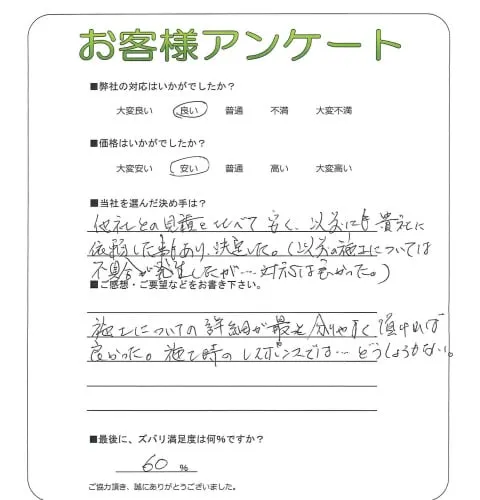 お客様アンケート
■弊社の対応はいかがでしたか？
大変良い 良い 普通 不満 大変不満
■価格はいかがでしたか？
大変安い 安い 普通 高い 大変高い
■当社を選んだ決め手は？
他社との見積と比べて安く、以前にも貴社に
依頼した事あり、決定した。(以前の施工については
不具合が発生したが…対応は良かった。)
■ご感想・ご要望などをお書き下さい。
施工についての詳細が分りやすく頂ければ
良かった。施工時のレスポンスでは…どうしようもない。
■最後に、ズバリ満足度は何%ですか？
60 %
ご協力頂き、誠にありがとうございました。